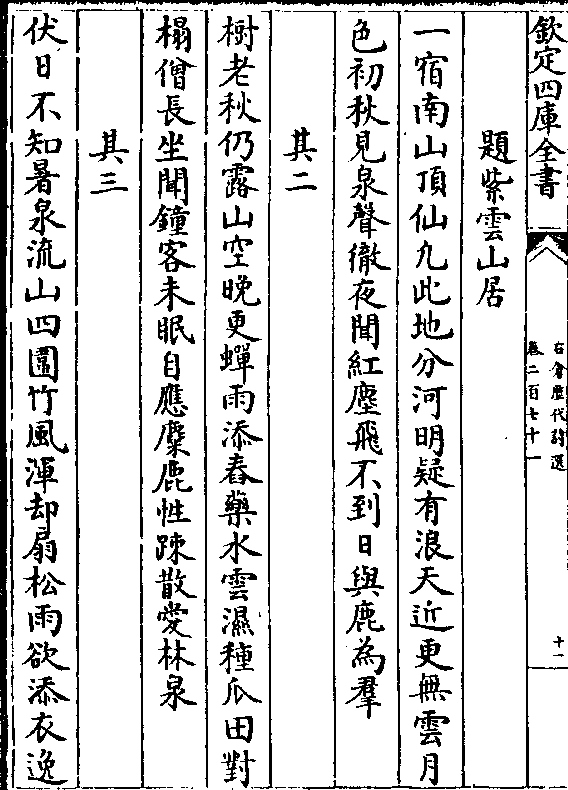 欽定四庫全書
石倉歴代詩選
卷二百七十一
十一
題紫雲山居
一宿南山頂仙凡此地分河明疑有浪天近更無雲月
色初秋見泉聲徹夜聞紅塵飛不到日與鹿為羣
其二
樹老秋仍露山空晚更蟬雨添舂藥水雲濕種瓜田對
榻僧長坐聞鐘客未眠自應麋鹿性踈散愛林泉
其三
伏日不知暑泉流山四圍竹風渾却扇松雨欲添衣逸